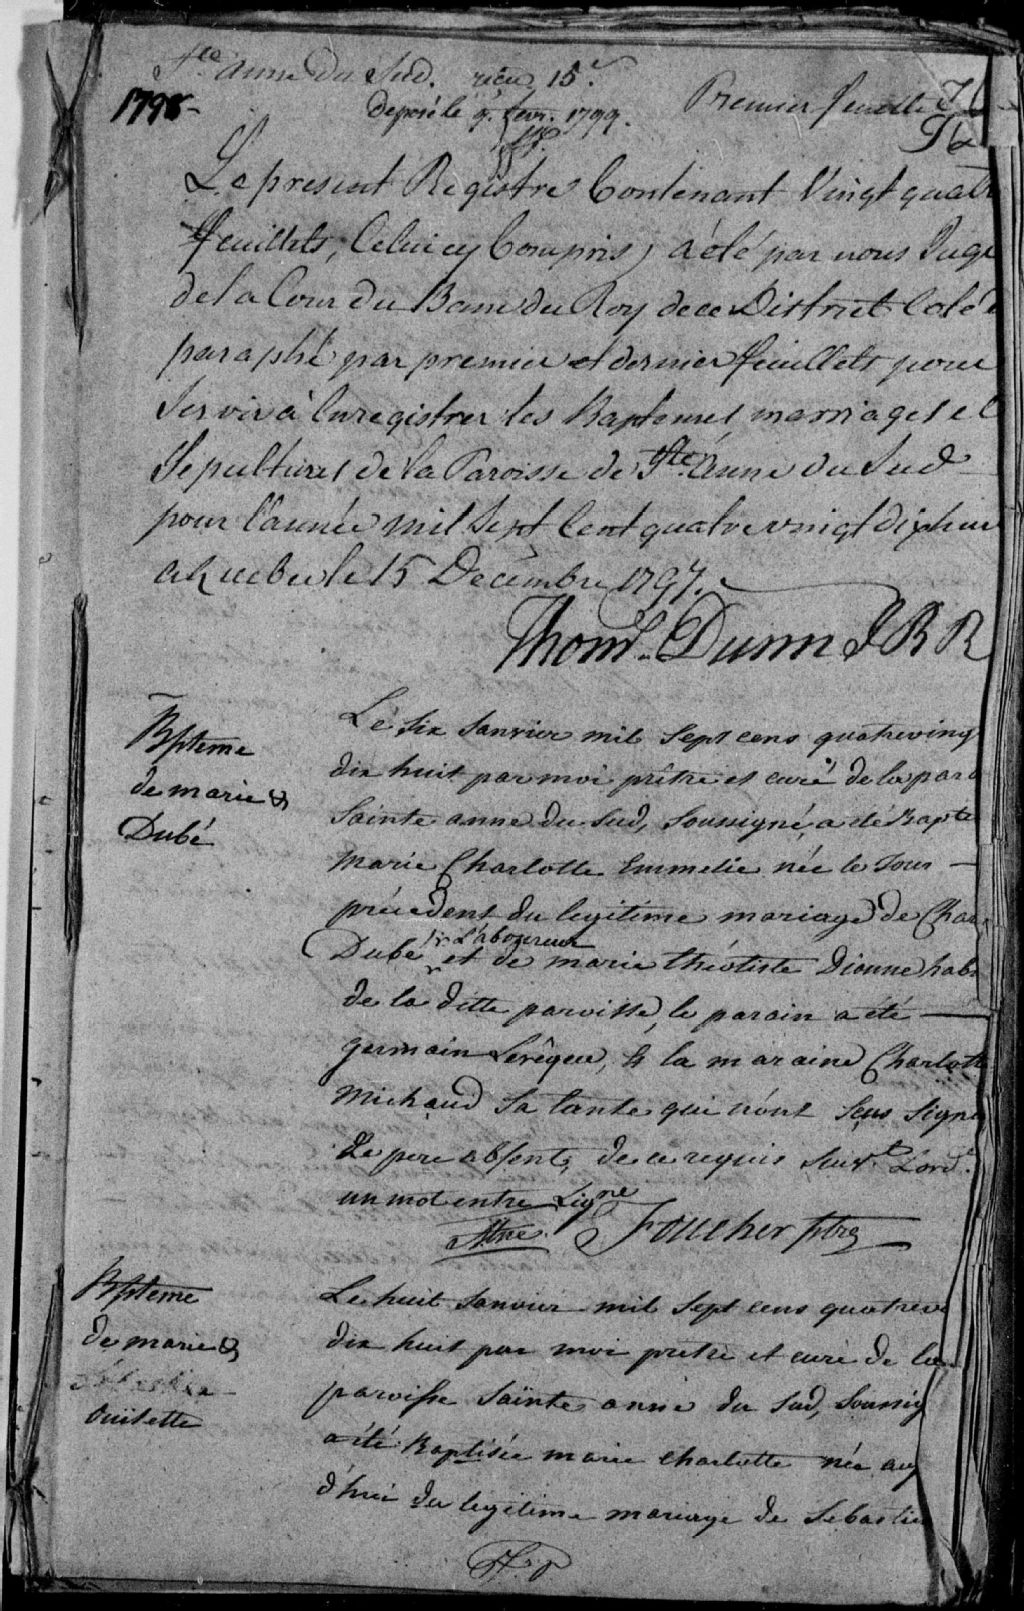 Ste anne du Sud. recu 15.
1798
deposé le 9. fevr. 1799.
Premier feuille
Le present Registre Contenant Vingt quat
feuillets, Celuicy Compris, a été par nous Juge
de la Cour du Banc du Roy de ce District Coté
paraphé par premier et dernier feuillets pour
servir à Enregistrer les Baptemes, marriages e
Sepultures de la Paroisse de Ste Anne du Sud
pour l'année mil Sept Cent quatre vingt dix hui
a Quebec le 15 Decembre 1797.
Thom.s Dunn J B R
Bpteme
de marie
Dubé
Le Six Janvier mil Sept cens quatreving
dix huit par moi prêtre et curé de la paro
Sainte anne du Sud, Soussigné, a été Bapte
marie Charlotte Emmelie née le Jour
précedent du legitime mariage de Char
L'aboureur
Dubé et de marie théotiste Dionne habi
de la ditte paroisse, le parain a été
germain Levêque, & la maraine Charlott
Michaud Sa tante qui n'ont Sçus Signe
Le pere absent, de ce requis Suivt. L'ord.
un mot entre Ligne
Foucher ptre
Bpteme
de marie
Ouillette
Le huit Janvier mil Sept cens quatrev
dix huit par moi prêtre et curé de la
paroisse Sainte anne du Sud, Soussig
a été Baptisée marie charlotte née auj
d'hui du legitime mariage de Sebastie